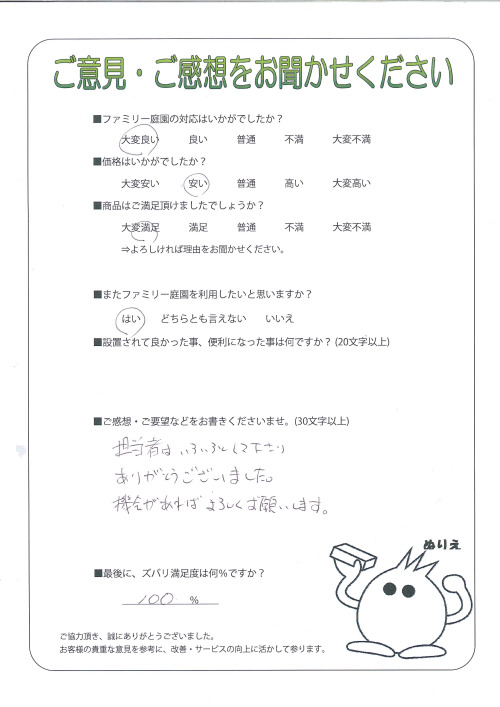 ご意見・ご感想をお聞かせください
■ファミリー庭園の対応はいかがでしたか？
大変良い 良い 普通 不満 大変不満
■価格はいかがでしたか？
大変安い 安い 普通 高い 大変高い
■商品はご満足頂けましたでしょうか？
大変満足 満足 普通 不満 大変不満
⇒よろしければ理由をお聞かせください。
■またファミリー庭園を利用したいと思いますか？
はい どちらとも言えない いいえ
■設置されて良かった事、便利になった事は何ですか？(20文字以上)
■ご感想・ご要望などをお書きくださいませ。(30文字以上)
担当者は いろいろとして下さり
ありがとうございました。
機会があれば よろしくお願いします。
ぬりえ
■最後に、ズバリ満足度は何％ですか？
100 %
ご協力頂き、誠にありがとうございました。
お客様の貴重な意見を参考に、改善・サービスの向上に活かして参ります。